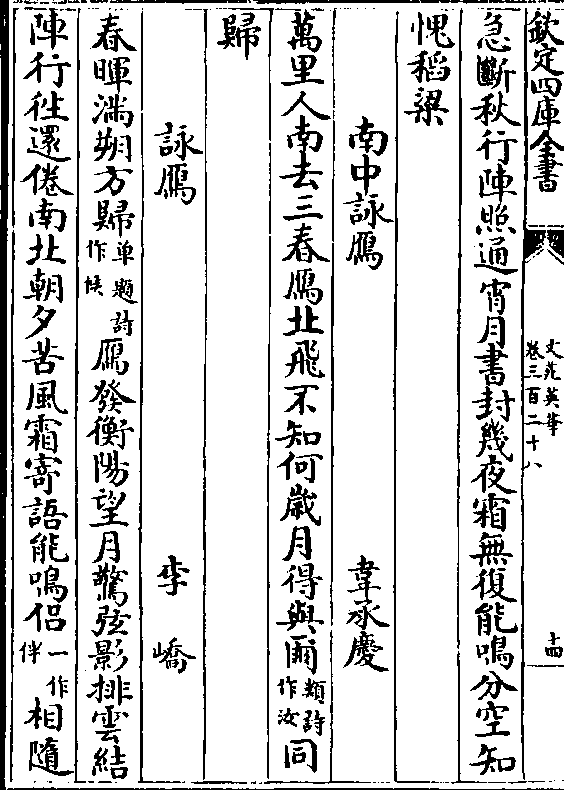 欽定四庫全書
文苑英華
卷三百二十八
十四
急斷秋行陣照通宵月書封幾夜霜無復能鳴分空知
愧稻梁
南中詠鴈 韋承慶
萬里人南去三春鴈北飛不知何歲月得與爾類詩作汝同
歸
詠鴈 李嶠
春暉滿朔方歸單題詩作候鴈發衡陽望月驚弦影排雲結
陣行徃還倦南北朝夕苦風霜寄語能鳴侣一作伴相隨